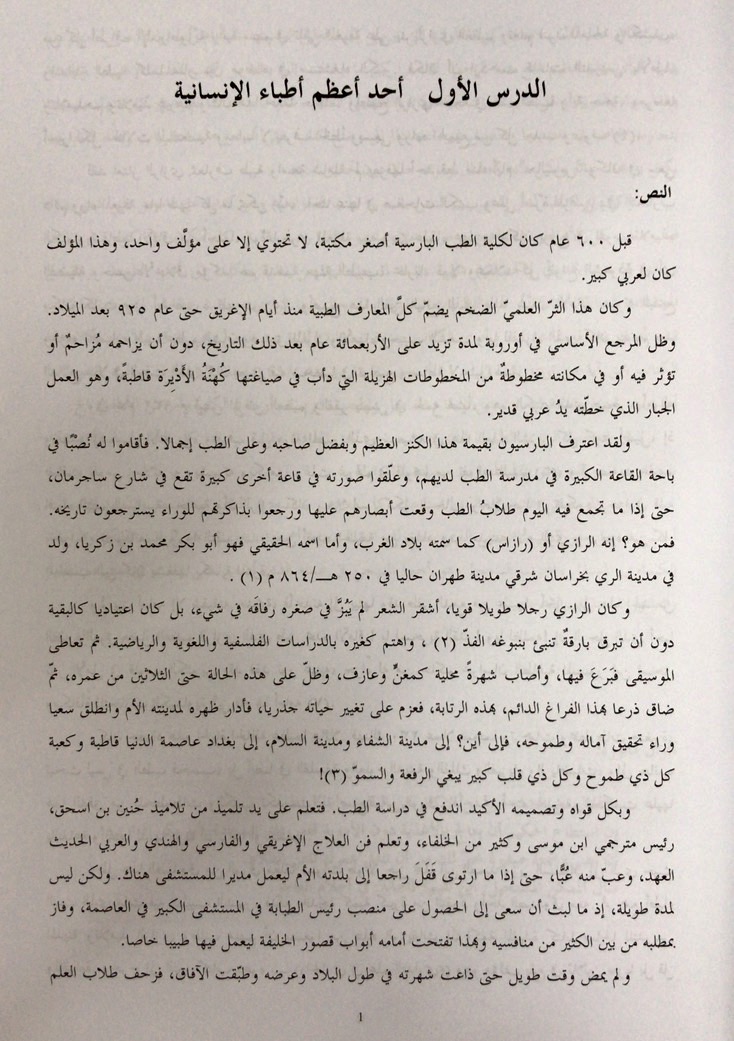 الدرس الأول   أحد أعظم أطباء الإنسانية
النص:
قبل ٦٠٠ عام كان لكلية الطب الباريسية أصغر مكتبة، لا تحتوي إلا على مؤلَّف واحد، وهذا المؤلف
كان لعربي كبير.
وكان هذا الثرّ العلميّ الضخم يضمّ كلَّ المعارف الطبية منذ أيام الإغريق حتى عام ٩٢٥ بعد الميلاد.
وظل المرجع الأساسي في أوروبة لمدة تزيد على الأربعمائة عام بعد ذلك التاريخ، دون أن يزاحمه مُزاحمٌ أو
تؤثر فيه أو في مكانته مخطوطةٌ من المخطوطات الهزيلة التي دأب في صياغتها كُهْنَةُ الأَدْيِرَة قاطبةً، وهو العمل
الجبار الذي خطّته يدُ عربي قدير.
ولقد اعترف البارسيون بقيمة هذا الكنز العظيم وبفضل صاحبه وعلى الطب إجمالا. فأقاموا له نُصْبًا في
باحة القاعة الكبيرة في مدرسة الطب لديهم، وعلّقوا صورته في قاعة أخرى كبيرة تقع في شارع ساجرمان،
حتى إذا ما تجمع فيه اليوم طلابُ الطب وقعت أبصارهم عليها ورجعوا بذاكرتهم للوراء يسترجعون تاريخه.
فمن هو؟ إنه الرازي أو (رازاس) كما سمته بلاد الغرب، وأما اسمه الحقيقي فهو أبو بكر محمد بن زكريا، ولد
في مدينة الري بخراسان شرقي مدينة طهران حاليا في ٢٥٠ هـ/٨٦٤ م (١) .
وكان الرازي رجلا طويلا قويا، أشقر الشعر لم يَبُزَّ في صغره رفاقَه في شيء، بل كان اعتياديا كالبقية
دون أن تبرق بارقةٌ تنبئ بنبوغه الفذّ (٢) ، واهتم كغيره بالدراسات الفلسفية واللغوية والرياضية. ثم تعاطى
الموسيقى فبَرَعَ فيها، وأصاب شهرةً محلية كمغنٍّ وعازف، وظلّ على هذه الحالة حتى الثلاثين من عمره، ثمّ
ضاق ذرعا بهذا الفراغ الدائم، بهذه الرتابة، فعزم على تغيير حياته جذريا، فأدار ظهره لمدينته الأم وانطلق سعيا
وراء تحقيق آماله وطموحه، فإلى أين؟ إلى مدينة الشفاء ومدينة السلام، إلى بغداد عاصمة الدنيا قاطبة وكعبة
كل ذي طموح وكل ذي قلب كبير يبغي الرفعة والسموّ (٣)!
وبكل قواه وتصميمه الأكيد اندفع في دراسة الطب. فتعلم على يد تلميذ من تلاميذ حُنين بن اسحق،
رئيس مترجمي ابن موسى وكثير من الخلفاء، وتعلم فن العلاج الإغريقي والفارسي والهندي والعربي الحديث
العهد، وعبّ منه عُبًّا، حتى إذا ما ارتوى قَفَلَ راجعا إلى بلدته الأم ليعمل مديرا للمستشفى هناك. ولكن ليس
لمدة طويلة، إذ ما لبث أن سعى إلى الحصول على منصب رئيس الطبابة في المستشفى الكبير في العاصمة، وفاز
بمطلبه من بين الكثير من منافسيه وبهذا تفتحت أمامه أبواب قصور الخليفة ليعمل فيها طبيبا خاصا.
و لم يمض وقت طويل حتى ذاعت شهرته في طول البلاد وعرضه وطبّقت الآفاق، فزحف طلاب العلم
1